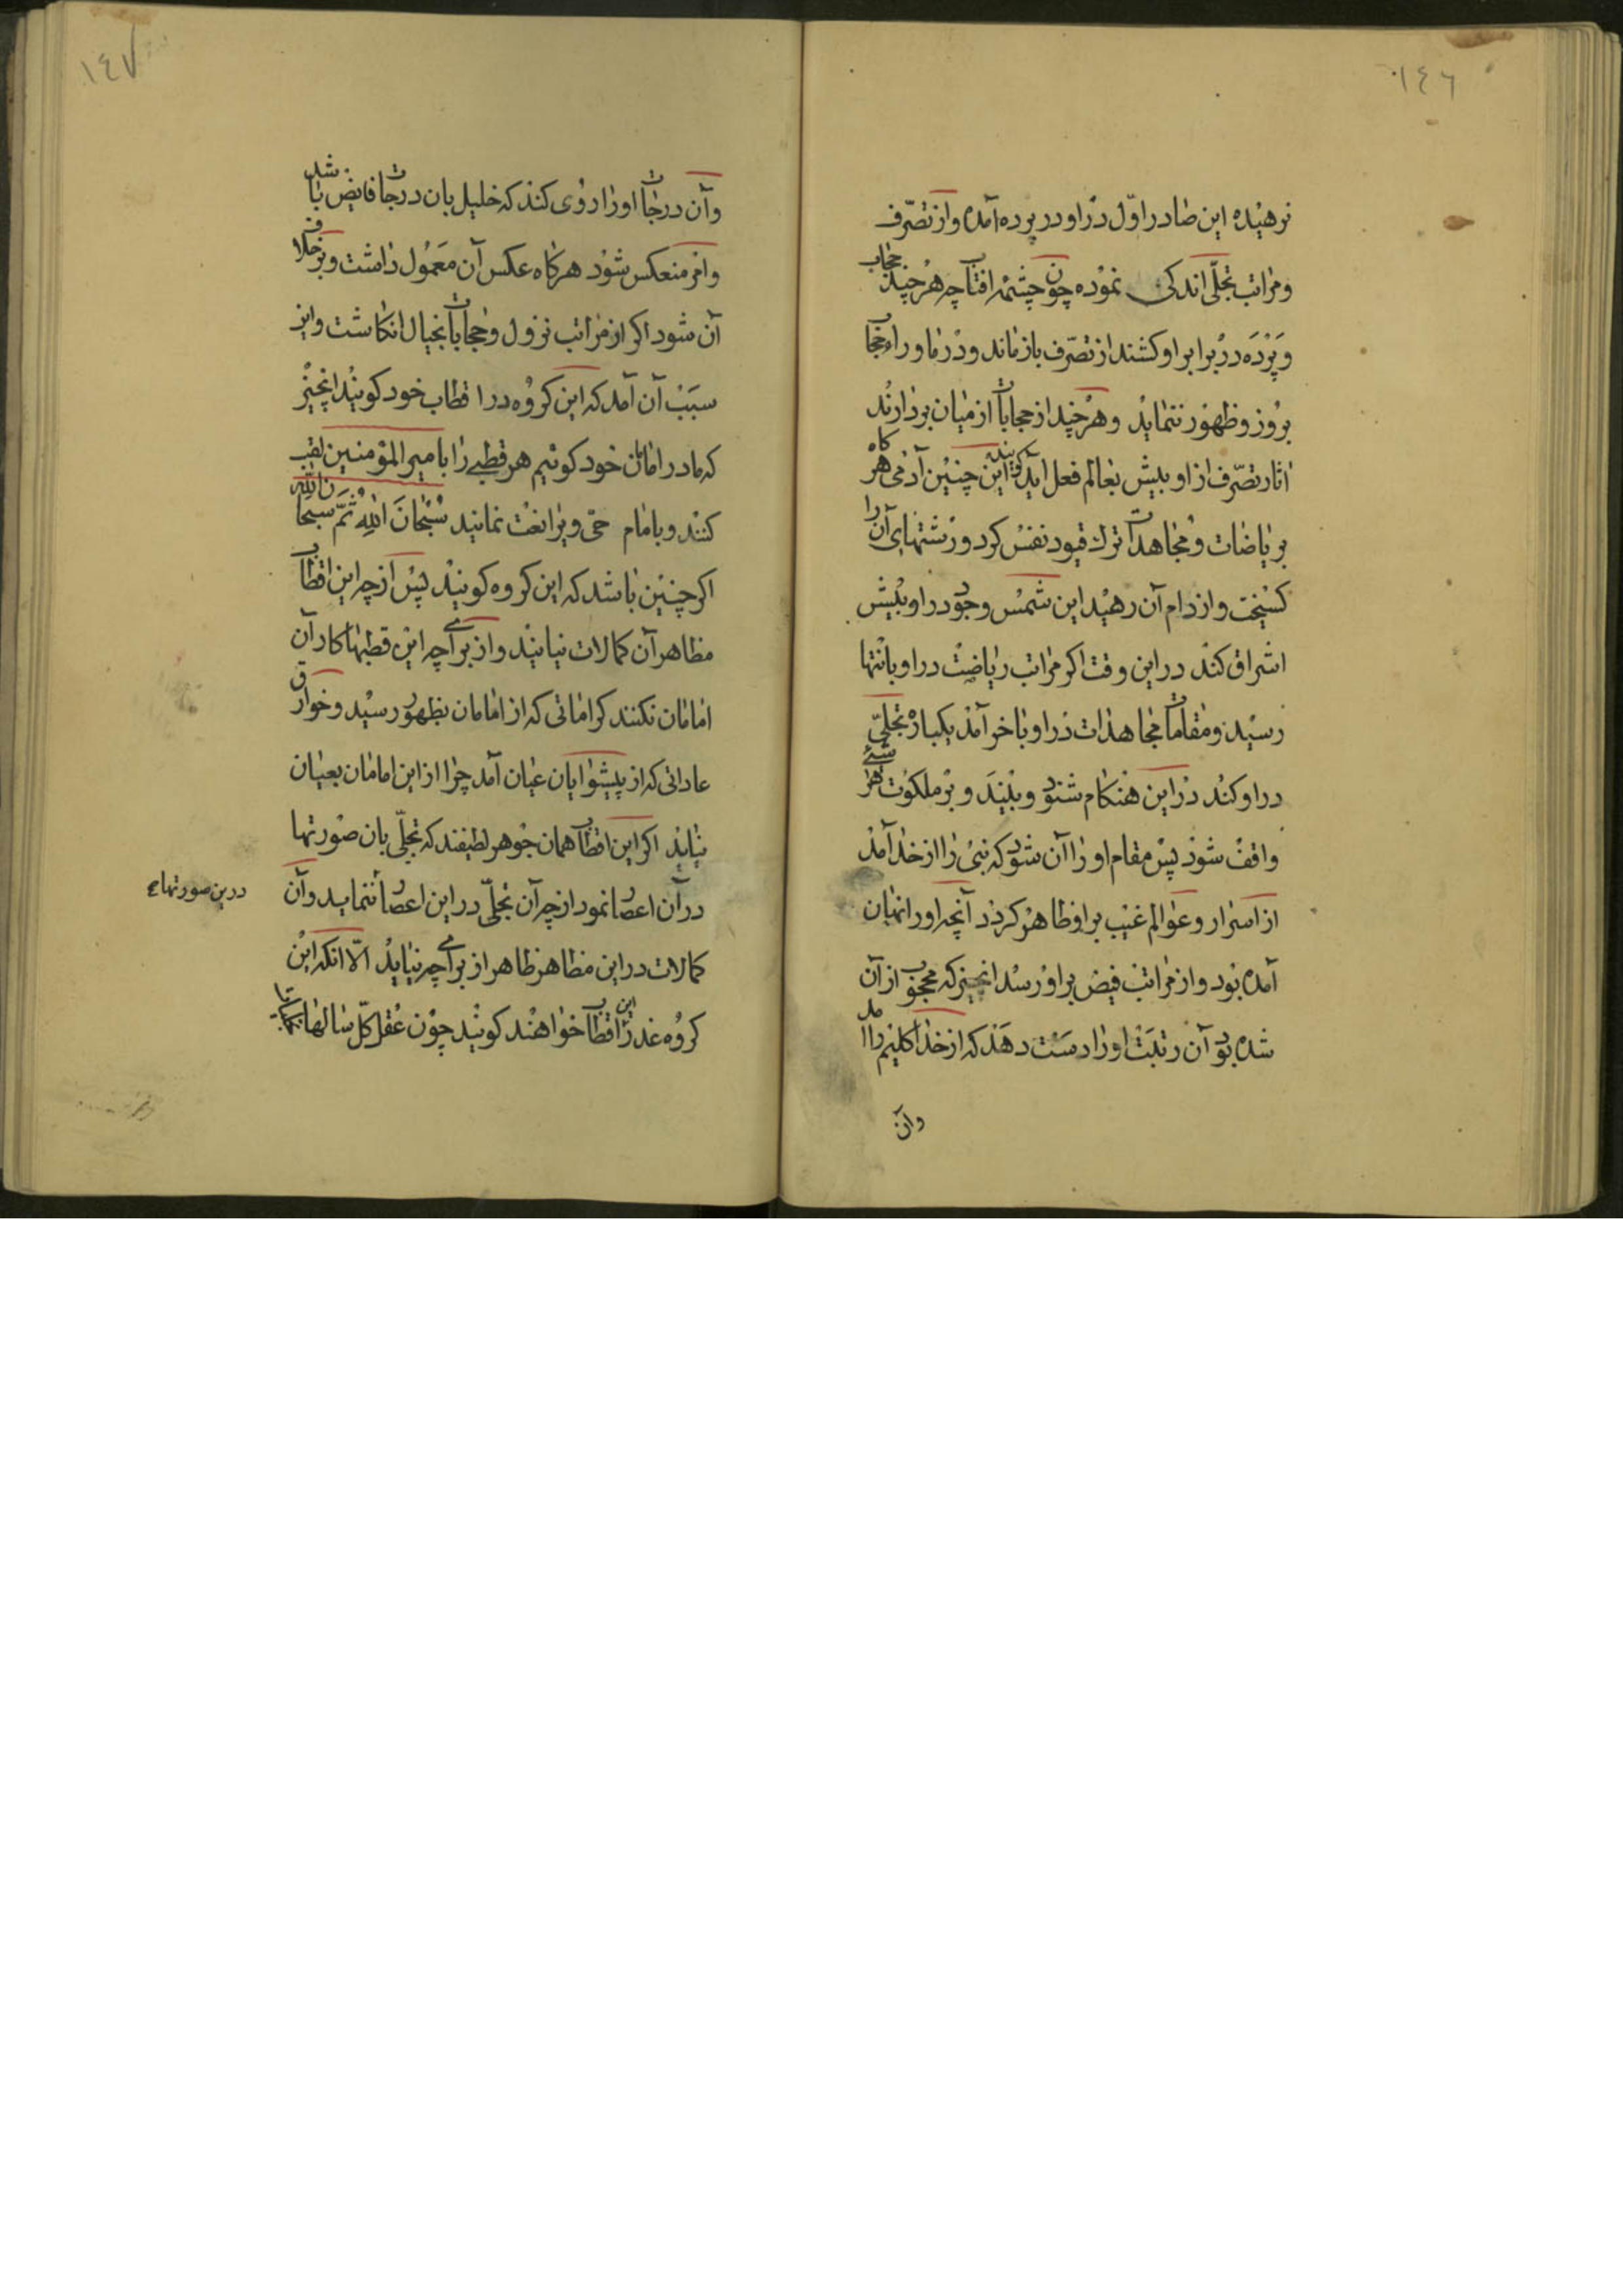 ١٤٦
نرهیده این صادر اوّل در او در پرده آمده و از تصرّف
و مراتب تجلّی اندکی نموده چون چشمه افتاب چه هر چند حجاب
و پرده در برابر او کشند از تصرّف باز ماند و در ماوراء حجاب
بروز و ظهور ننماید و هر چند از حجابات از میان بردارند
اثار تصرّف از او بیش بعالم فعل اید گویند این چنین آدمی هر کاه
بریاضات و مجاهدات ترك قیود نفس کرد و رشتهای آن را
کسیخت و از دام آن رهید این شمس وجود در او بیش
اشراق کند در این وقت اکر مراتب ریاضت در او بانتها
رسید و مقامات مجاهدات در او باخر آمد یکباره تجلّی
در او کند در این هنکام شنود و بیند و بر ملکوت هر شیئ
واقف شود پس مقام او را آن شود که نبی را از خدا آمد
از اسرار و عوالم غیب بر او ظاهر کردد آنچه اورا نهان
آمده بود و از مراتب فیض بر او رسد انچیز که محجوب از آن
شده بود آن رتبت او را دست دهد که از خدا کلیم را امد
وآن
١٤٧
وآن درجات او را روی کند که خلیل بان درجات فایض باشد
وامر منعکس شود هر کاه عکس آن معمول داشت و بر خلاف
آن شود اکر از مراتب نزول و حجابات آنخیال انکاشت واین
سبب آن آمد که این کروه در اقطاب خود کویند انچیز
که ما در امامان خود کوئیم هر قطبی را با میر المؤمنین لقب
کنند و بامام حیّ ویرا نعت نمایند سُبْحَانَ اللهِ ثُمَّ سبحان الله
اکر چنین باشد که این کروه کویند پس از چه این اقطاب
مظاهر آن کمالات نیایند و از برای چه این قطبها کار آن
امامان نکنند کراماتی که از امامان بظهور رسید و خوارق
عاداتی که از پیشوایان عیان آمد چرا از این امامان بعیان
نیاید اکر این اقطاب همان جوهر لطیفند که تجلّی بان صورتها
در آن اعصار نمود از چه آن تجلّی در این اعصار ننماید وآن
درین صورتها
کمالات در این مظاهر ظاهر از برای چه نیاید الّا انکه این
کروه عذر این اقطاب خواهند کویند چون عقل کلّ سالها